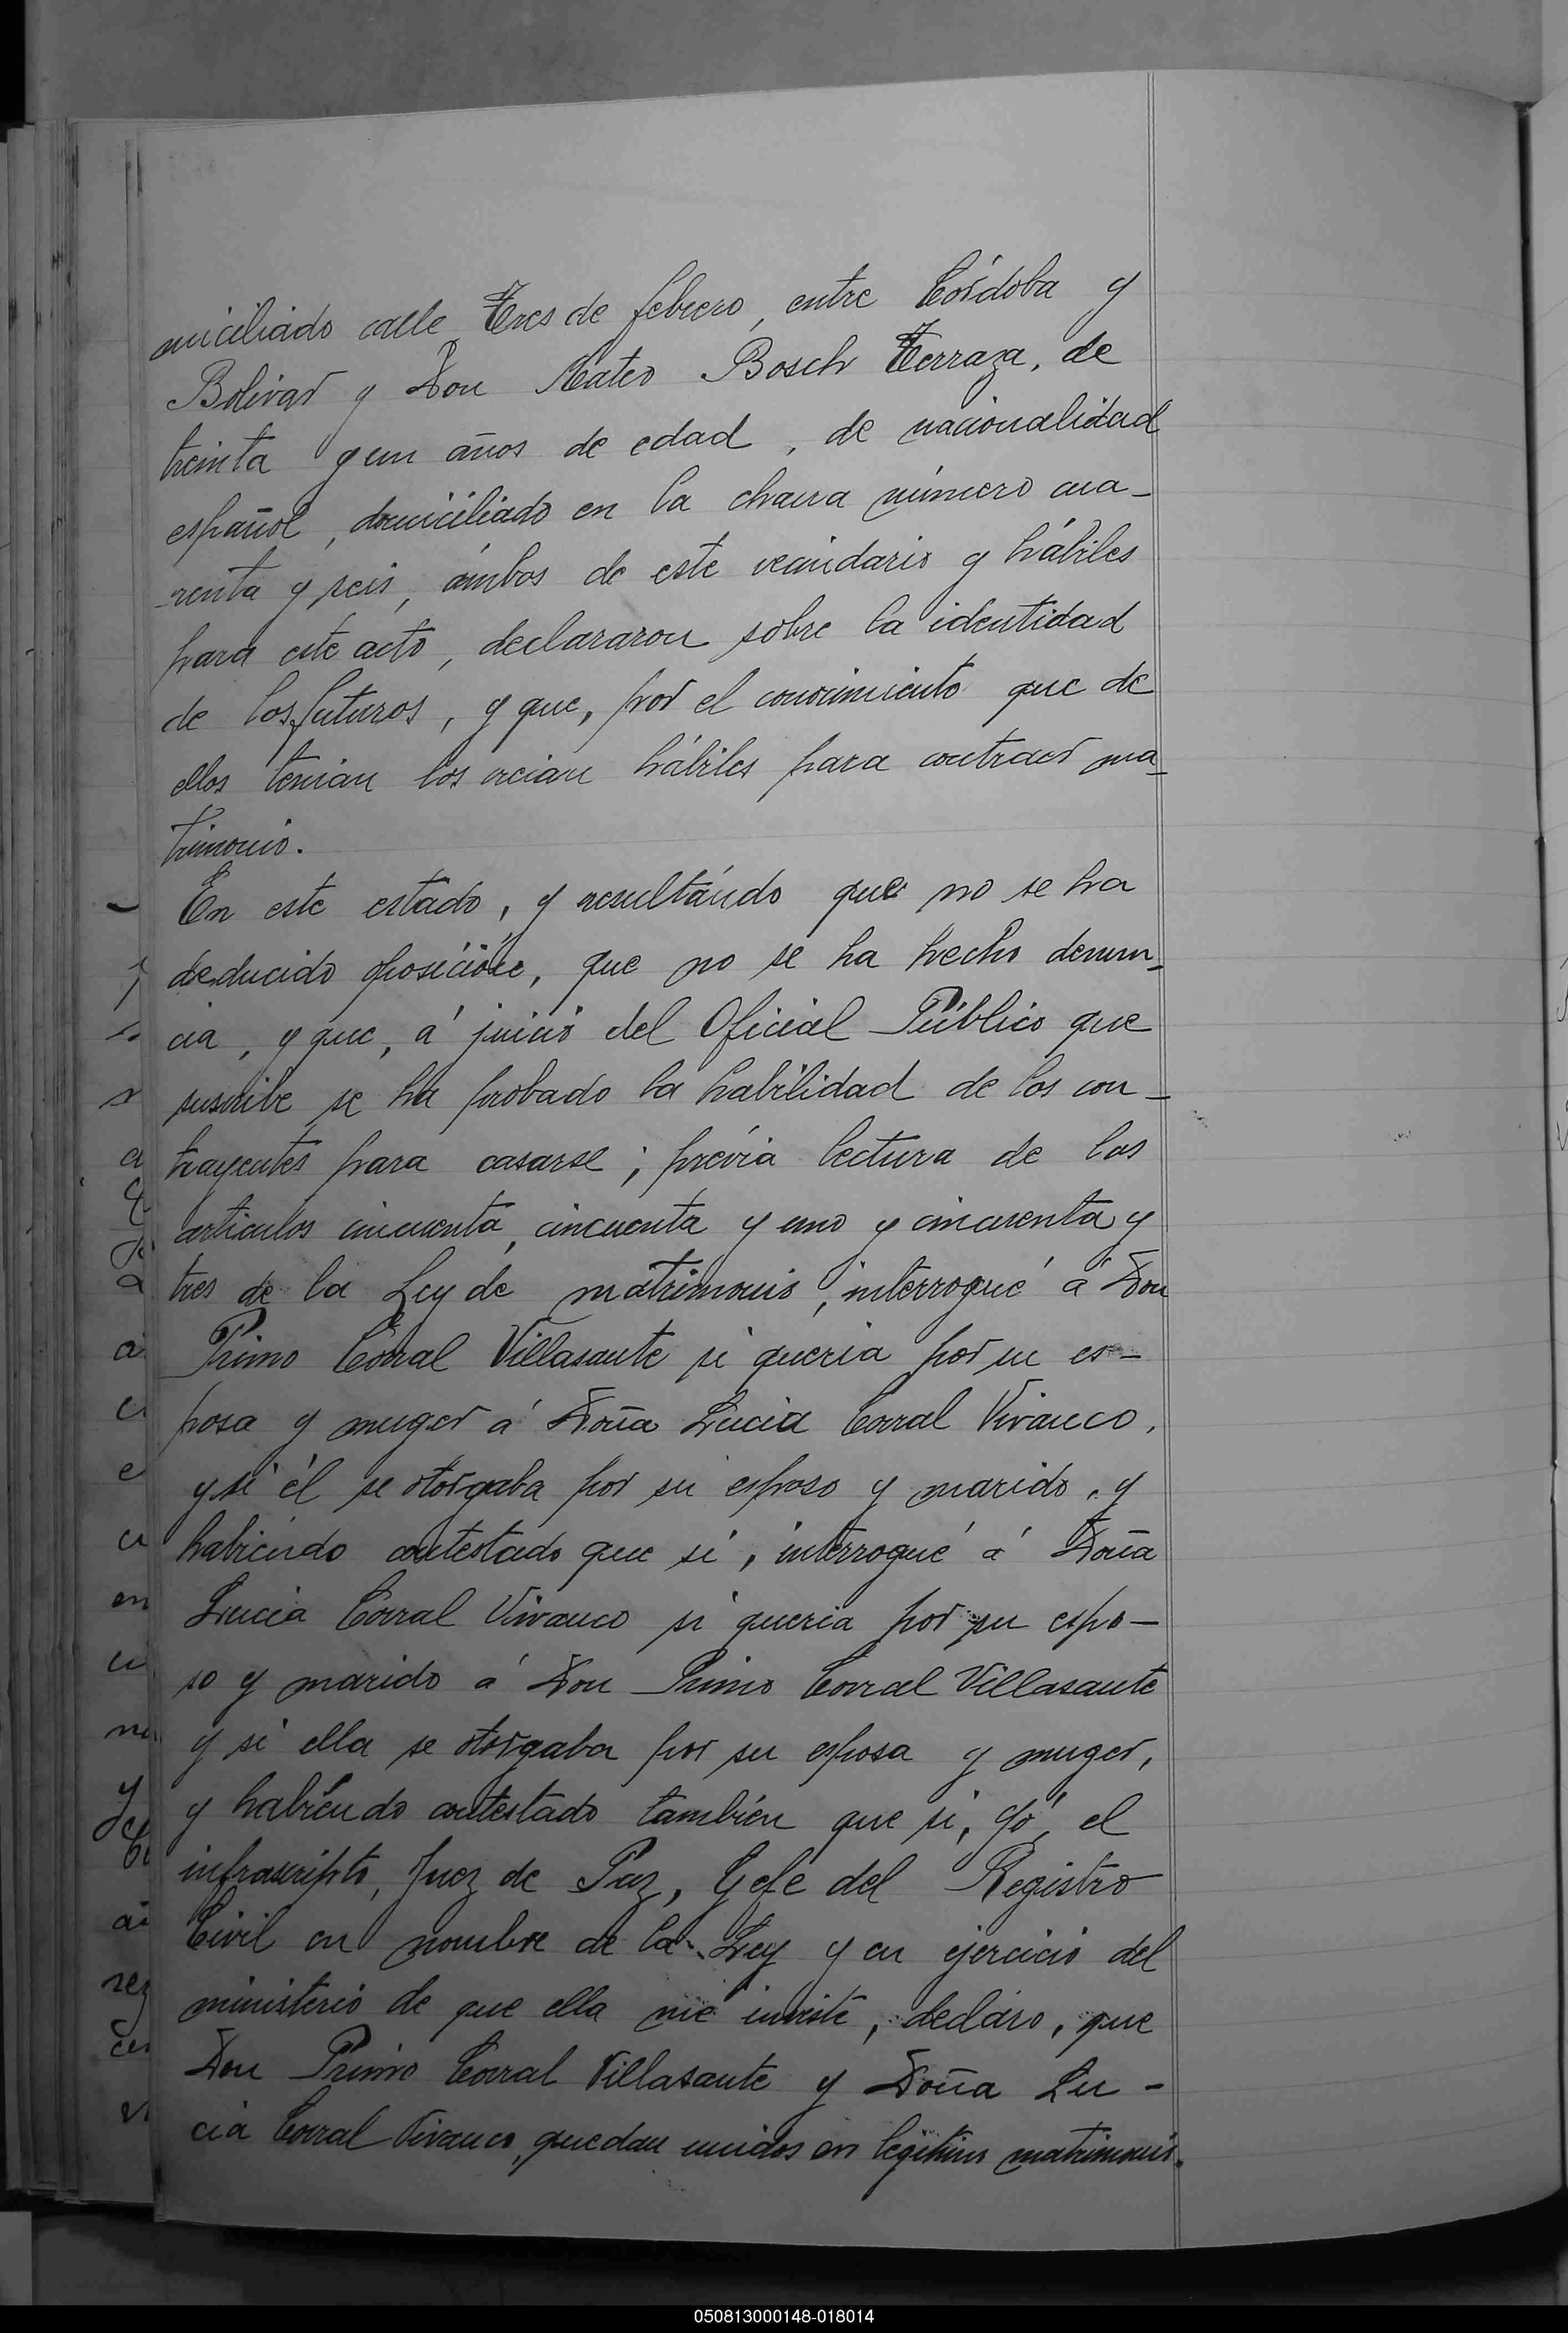 miciliado calle Tres de febrero, entre Córdoba y
Bolivar y Don Mateo Bosch Terraza, de
treinta y un años de edad, de nacionalidad
español, domiciliado en la chacra número cua-
renta y seis, ámbos de este vecindario y hábiles
para este acto, declararon sobre la identidad
de los futuros, y que, por el conocimiento que de
ellos tenian los creian hábiles para contraer ma-
trimonio.
En este estado, y resultándo que no se ha
deducido oposición, que no se ha hecho denun-
cia, y que, á juicio del Oficial Público que
suscribe se ha probado la habilidad de los con-
trayentes para casarse; prévia lectura de los
artículos cincuenta, cincuenta y uno y cincuenta y
tres de la Ley de matrimonio, interrogué á Don
Primo Corral Villasante si queria por su es-
posa y muger á Doña Lucia Corral Vivanco,
y si él se otorgaba por su esposo y marido, y
habiendo contestado que si, interrogué á Doña
Lucia Corral Vivanco si queria por su espo-
so y marido á Don Primo Corral Villasante
y si ella se otorgaba por su esposa y muger,
y habiéndo contestado también que si, yó, el
infrascripto, Juez de Paz, Gefe del Registro
Civil en nombre de la Ley y en ejercicio del
ministerio de que ella me inviste, decláro, que
Don Primo Corral Villasante y Doña Lu-
cia Corral Vivanco, quedan unidos en legítimo matrimonio.
050813000148-018014